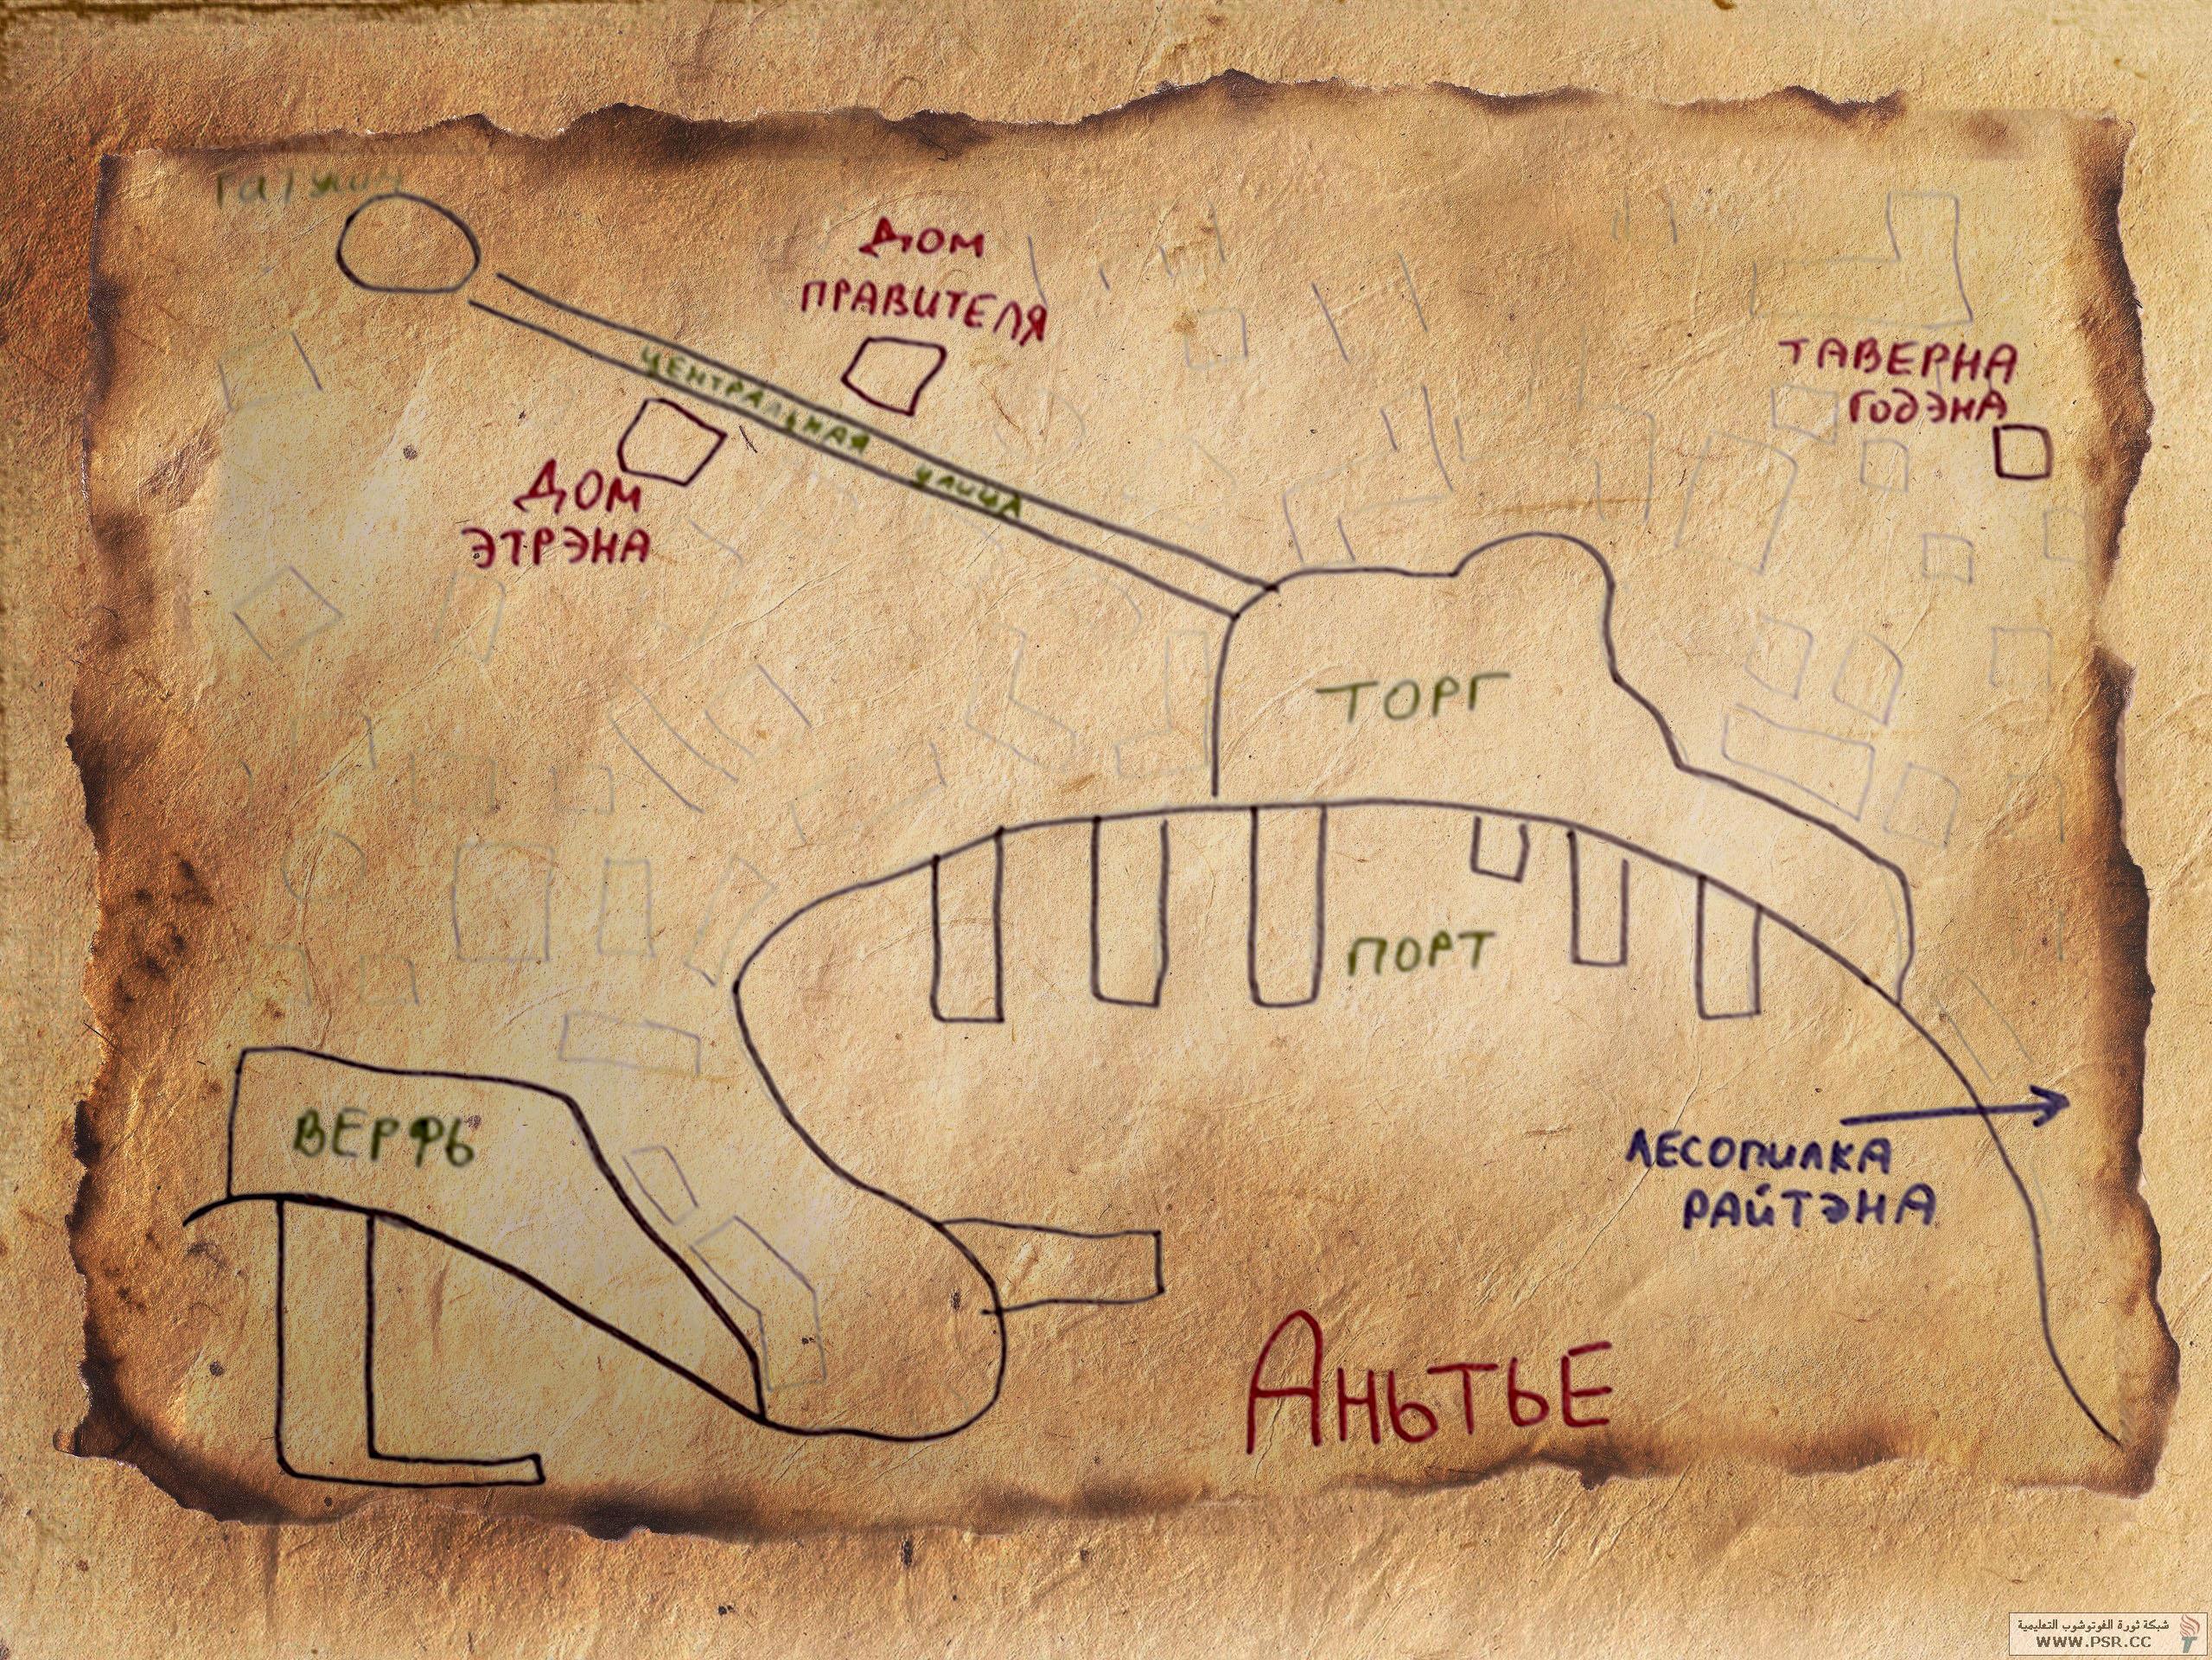 ДОМ
ПРАВИТЕЛЯ
ЦЕНТРАЛЬНАЯ УЛИЦА
ДОМ
ЭТРЭНА
ТАВЕРНА
ГОДЭНА
ТОРГ
ПОРТ
ВЕРФЬ
ЛЕСОПИЛКА
РАЙТЭНА
АНЬТЬЕ
شبكة ثورة الفوتوشوب التعليمية
WWW.PSR.CC